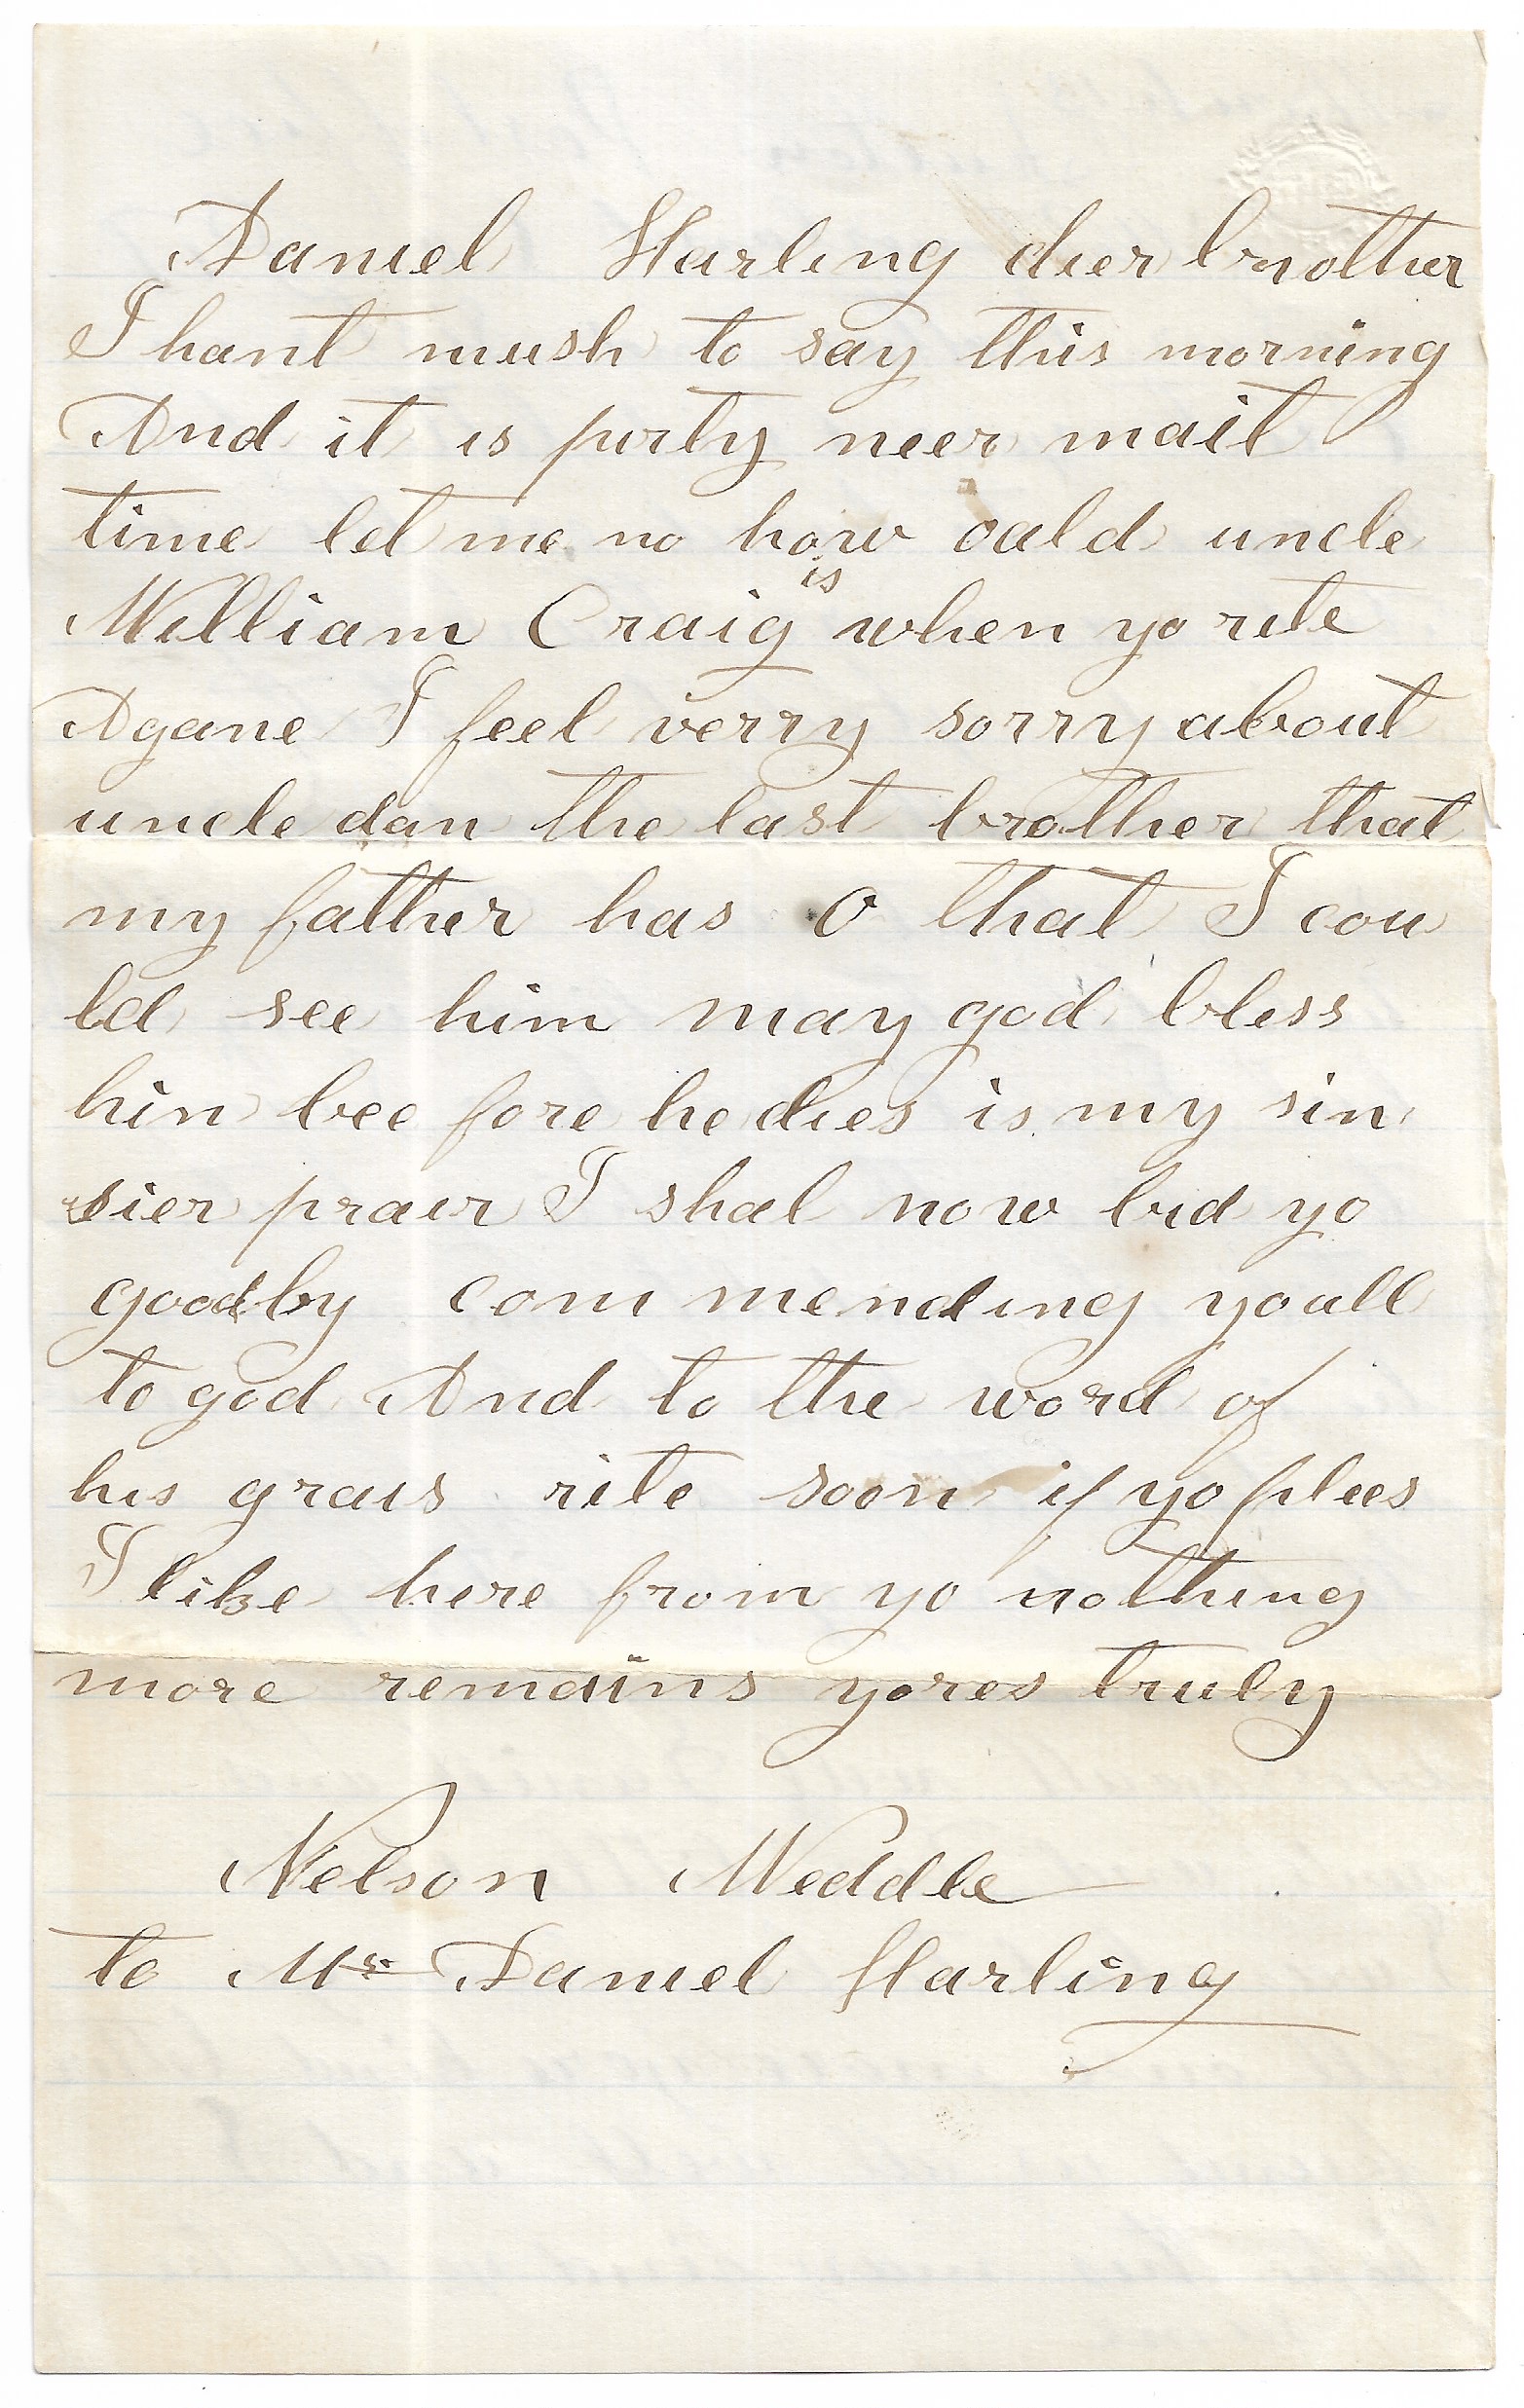 Daniel Starling dier brother
I hant mush to say this morning
And it is purty neer mail
time let me no how oald uncle
is
William Craig when yo rite
Agane I feel verry sorry about
uncle dan the last brother that
my father has O that I cou
ld see him may god bless
hin bee fore he dies is my sin
sier prair I shal now bid yo
goodby com mending yo all
to god And to the word of
his grais rite soon if yo plees
I like here from yo nothing
more remains yores truly
Nelson Weddle
to Mr Daniel Starling